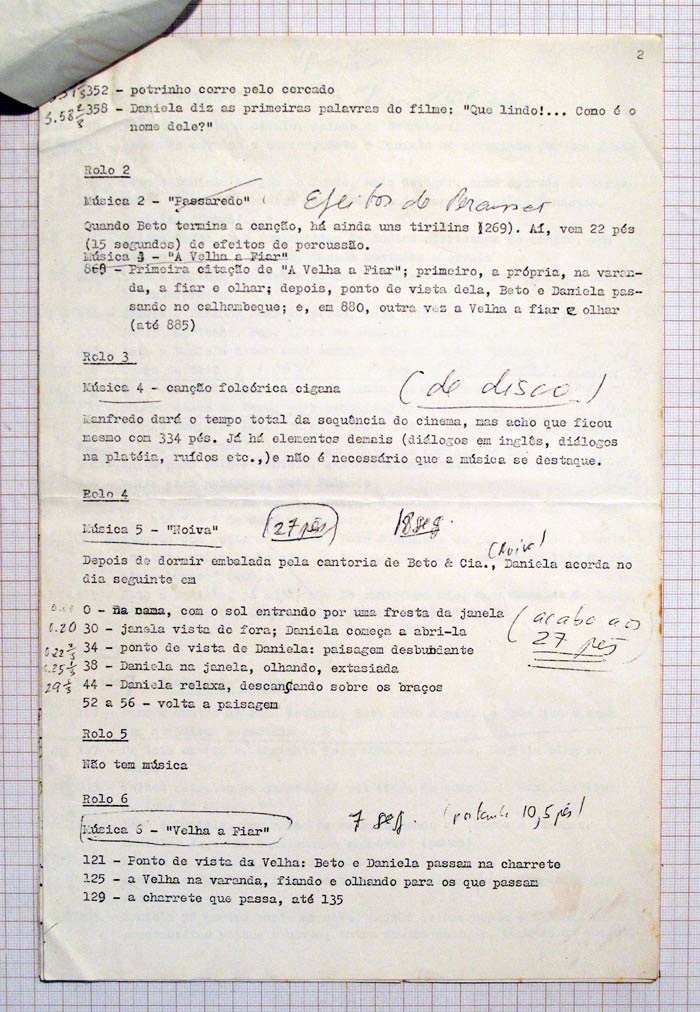 2
352 - potrinho corre pelo cercado
5.58 2/3 358 - Daniela diz as primeiras palavras do filme: "Que lindo!... Como é o
nome dele?"
Rolo 2
Música 2 - "Passaredo" Efeitos de
Quando Beto termina a canção, há ainda uns tirilins (269). Aí, vem 22 pés
(15 segundos) de efeitos de percussão.
Música 3 - "A Velha a Fiar"
868 - Primeira citação de "A Velha a Fiar"; primeiro, a própria, na varan-
da, a fiar e olhar; depois, ponto de vista dela, Beto e Daniela pas-
sando no calhambeque; e, em 880, outra vez a Velha a fiar e olhar
(até 885)
Rolo 3
Música 4 - canção folcórica cigana (de disco)
Manfredo dará o tempo total da sequência do cinema, mas acho que ficou
mesmo com 334 pés. Já há elementos demais (diálogos em inglês, diálogos
na platéia, ruídos etc.,)e não é necessário que a música se destaque.
Rolo 4
Música 5 - "Noiva" (27 pés) 18 seg.
(Noiva)
Depois de dormir embalada pela cantoria de Beto & Cia., Daniela acorda no
dia seguinte em
0 - na cama, com o sol entrando por uma fresta da janela (acaba aos
0.20 30 - janela vista de fora; Daniela começa a abri-la 27 pés)
0.22 2/3 34 - ponto de vista de Daniela: paisagem desbundante
0.25 1/3 38 - Daniela na janela, olhando, extasiada
29 1/3 44 - Daniela relaxa, descançando sobre os braços
52 a 56 - volta a paisagem
Rolo 5
Não tem música
Rolo 6
7 seg. (portanto 10,5 pés)
Música 6 - "Velha a Fiar"
121 - Ponto de vista da Velha: Beto e Daniela passam na charrete
125 - a Velha na varanda, fiando e olhando para os que passam
129 - a charrete que passa, até 135